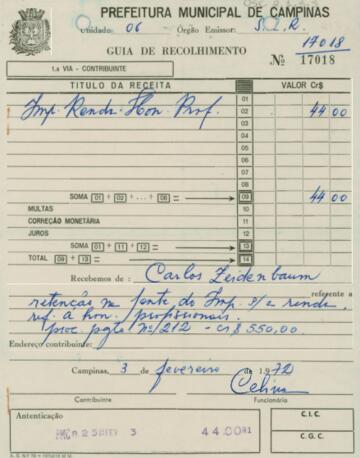 PREFEITURA MUNICIPAL DE CAMPINAS
Unidade: 06 Órgão Emissor: S.I.R.
17018
GUIA DE RECOLHIMENTO Nº 17018
1.a VIA - CONTRIBUINTE
TITULO DA RECEITA VALOR Cr$
01
Imp. Renda - Hon. Prof. 02 44 00
08
SOMA 01 + 02 + ... + 08 = 09 44 00
MULTAS 10
CORREÇÃO MONETÁRIA
JUROS
SOMA 10 + 11 + 12 = 13
TOTAL 09 + 13 = 14
Recebemos de: Carlos Zeidenbaum
referente a
retenção na fonte, do Imp. s/a renda,
ref. à hon. profissionais.
proc. pgto nº/212 - Cr$ 550,00.
Endereço contribuinte:
Campinas, 3 de fevereiro de 1.972
Contribuinte Funcionária
Autenticação C.I.C.
C.G.C.
3 44.00